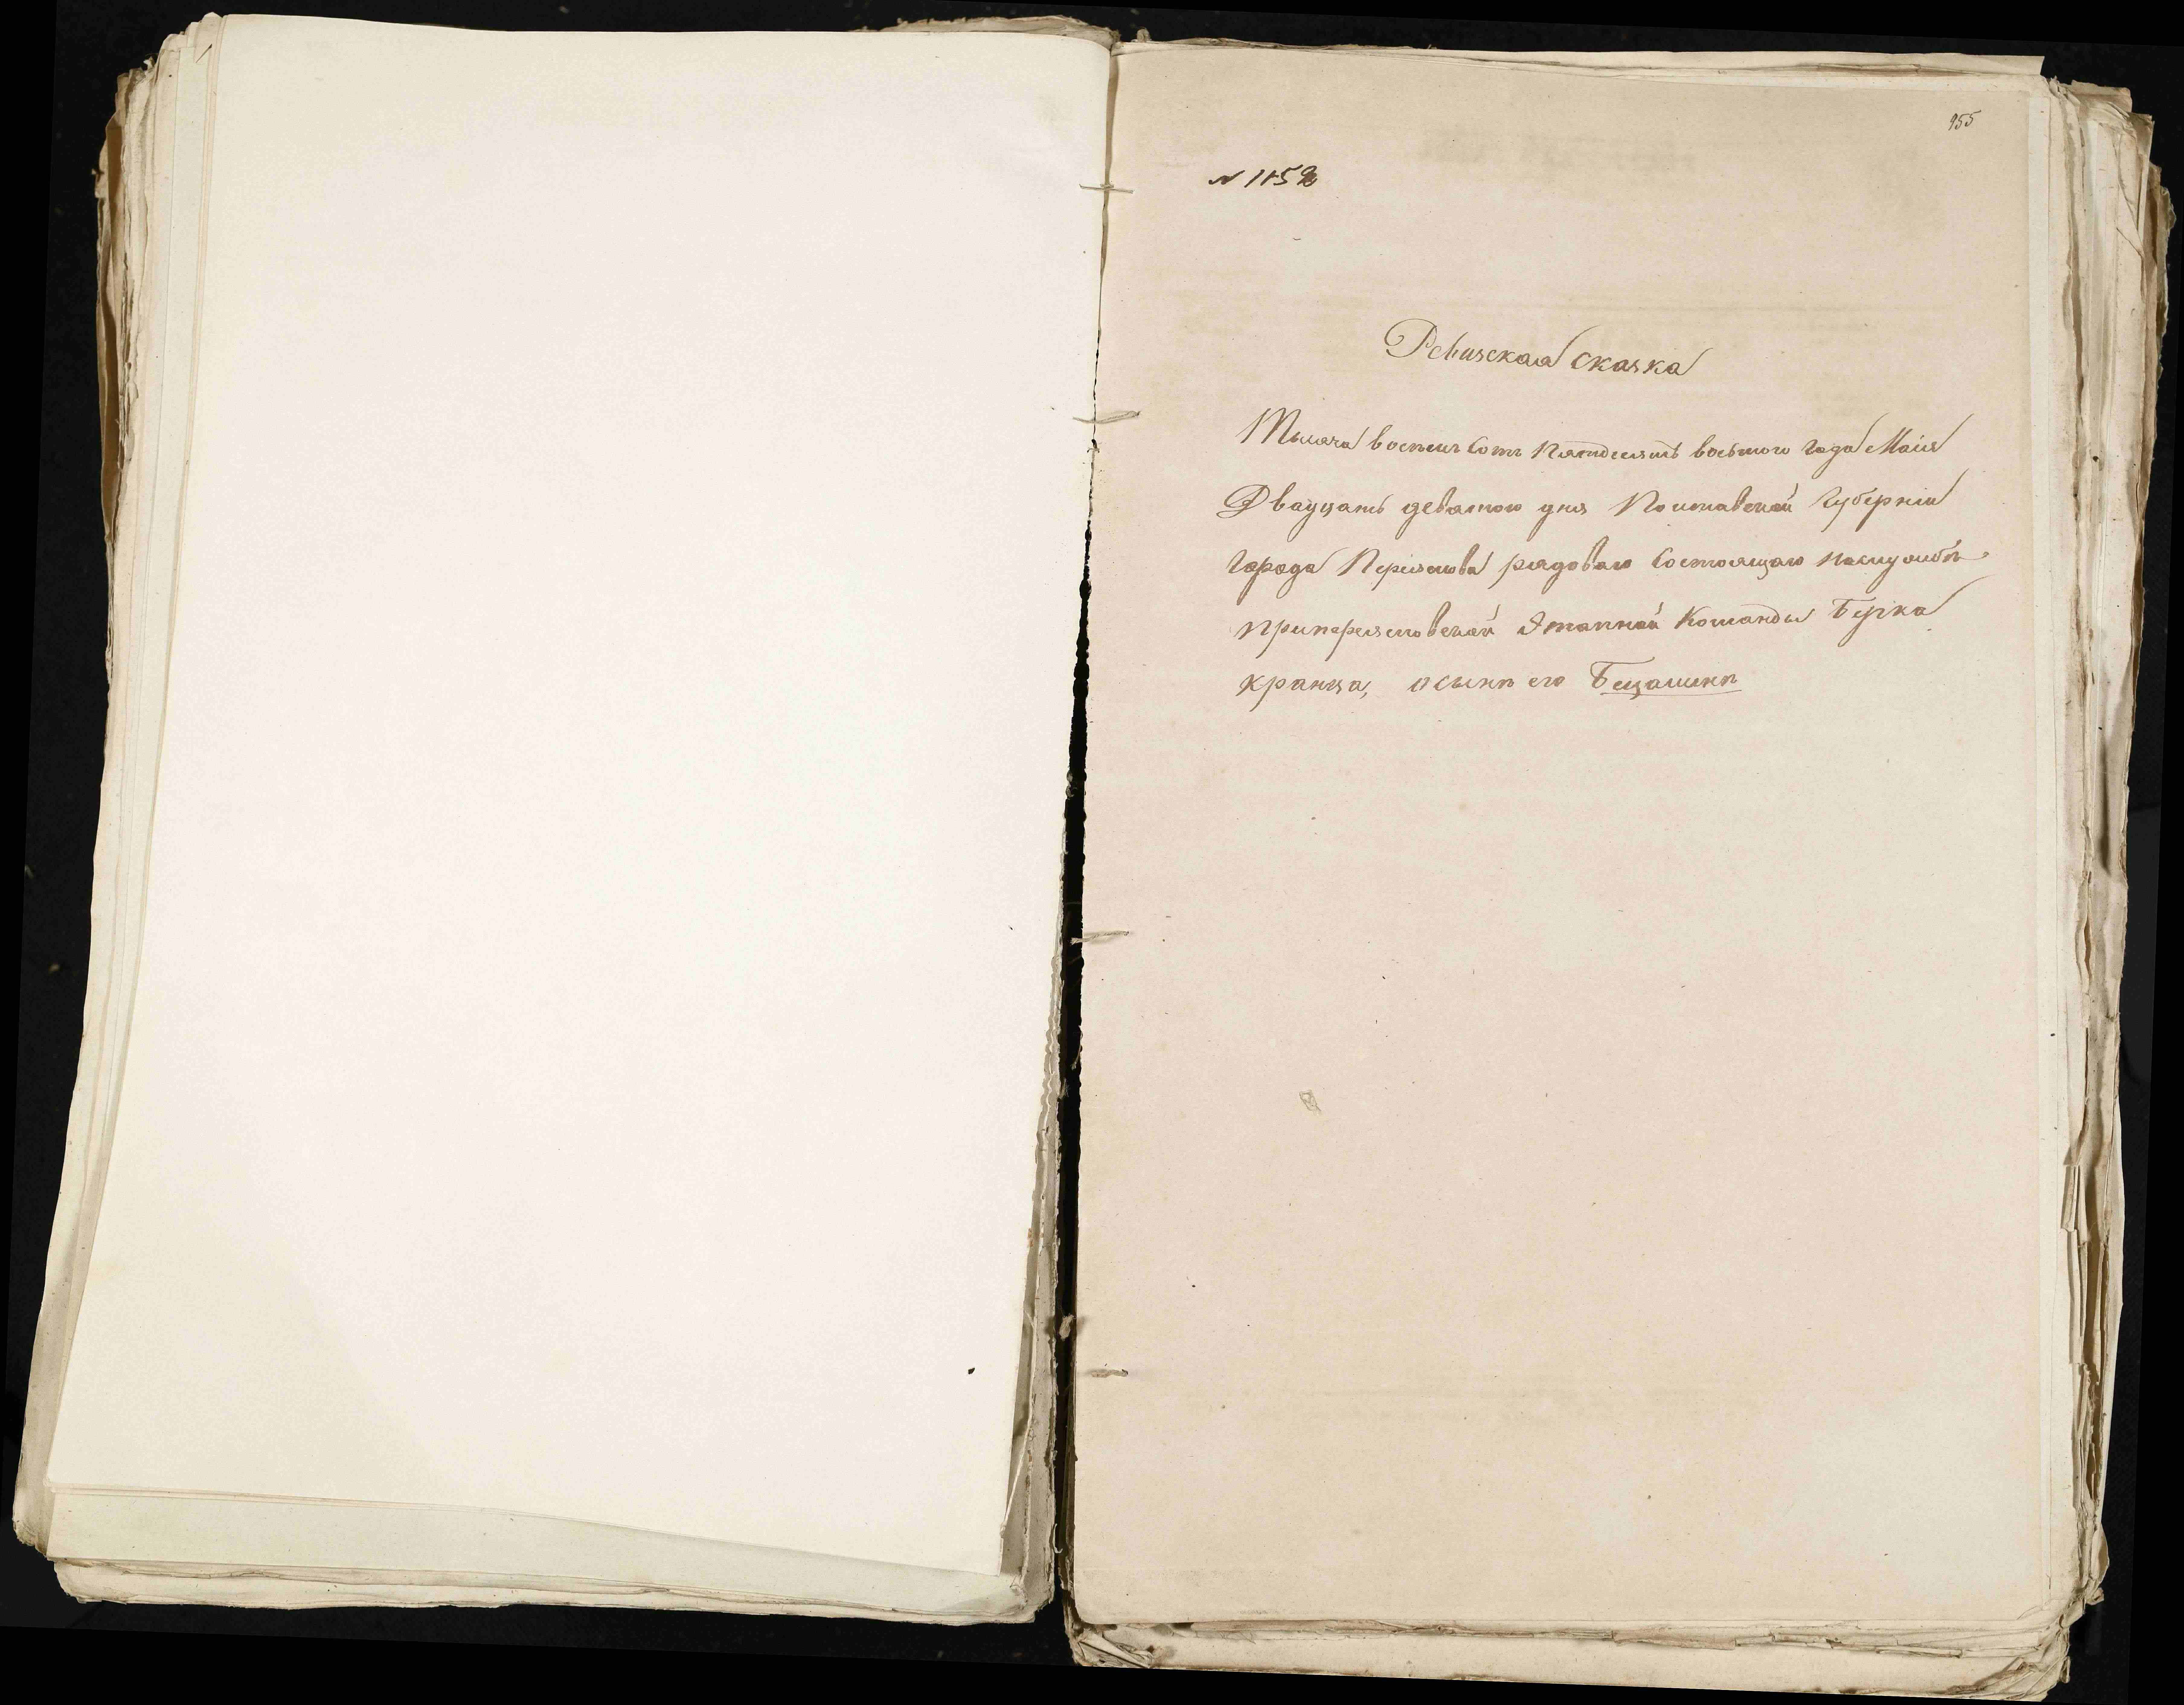 955
N 1152
Ревизская сказка
Тысяча восемь сотъ Пятдесятъ восьмого года Маія
Двадцать девятого дня Полтавской Губерніи
города Переяслова рядоваго Состоящаго наслужбѣ
припереясловской Этапной Команды Берка
кранца, осынѣ его